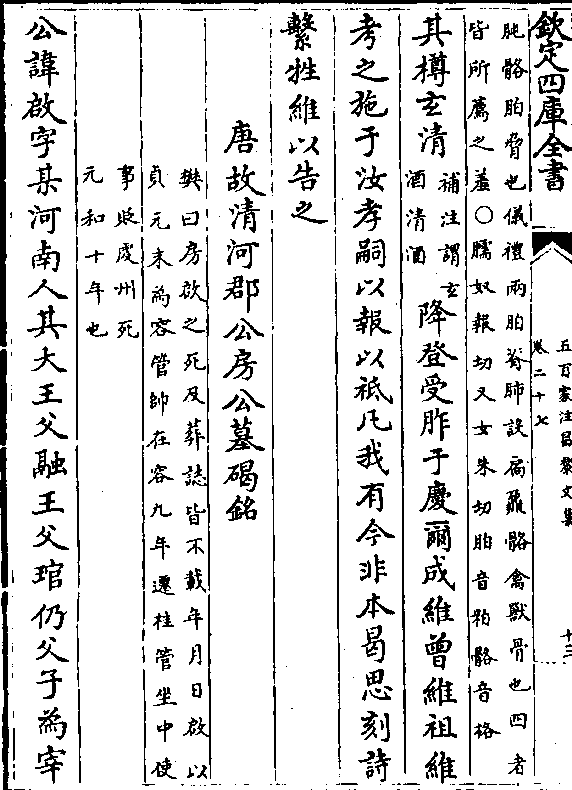 欽定四庫全書
五百家注昌黎文集
卷二十七
十三
肫骼胉脅也儀禮兩胉脊肺設扃鼏骼禽獸骨也四者
皆所薦之羞○臑奴報切又女朱切胉音粕骼音格
其樽玄清補注謂玄酒清酒降登受胙于慶爾成維曾維祖維
考之施于汝孝嗣以報以祗凡我有今非本曷思刻詩
繫牲維以告之
唐故清河郡公房公墓碣銘
樊曰房啟之死及葬誌皆不載年月日啟以
貞元末為容管帥在容九年遷桂管坐中使
事貶虔州死
元和十年也
公諱啟字某河南人其大王父融王父琯仍父子為宰